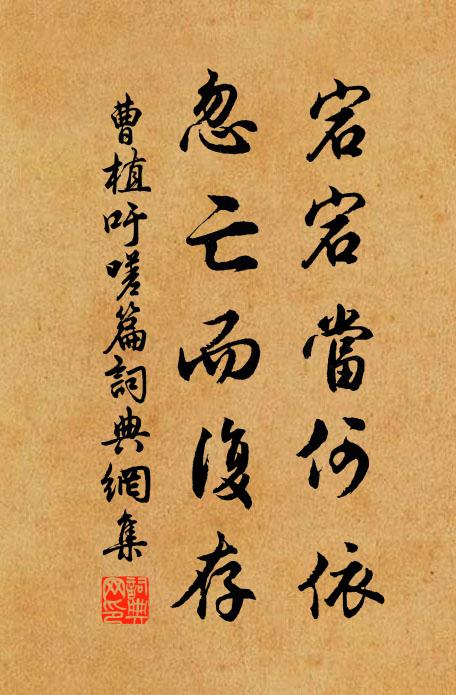 宕宕當何依
忽亡而復存
曹植吁嗟篇詞典網集
詞典
网印